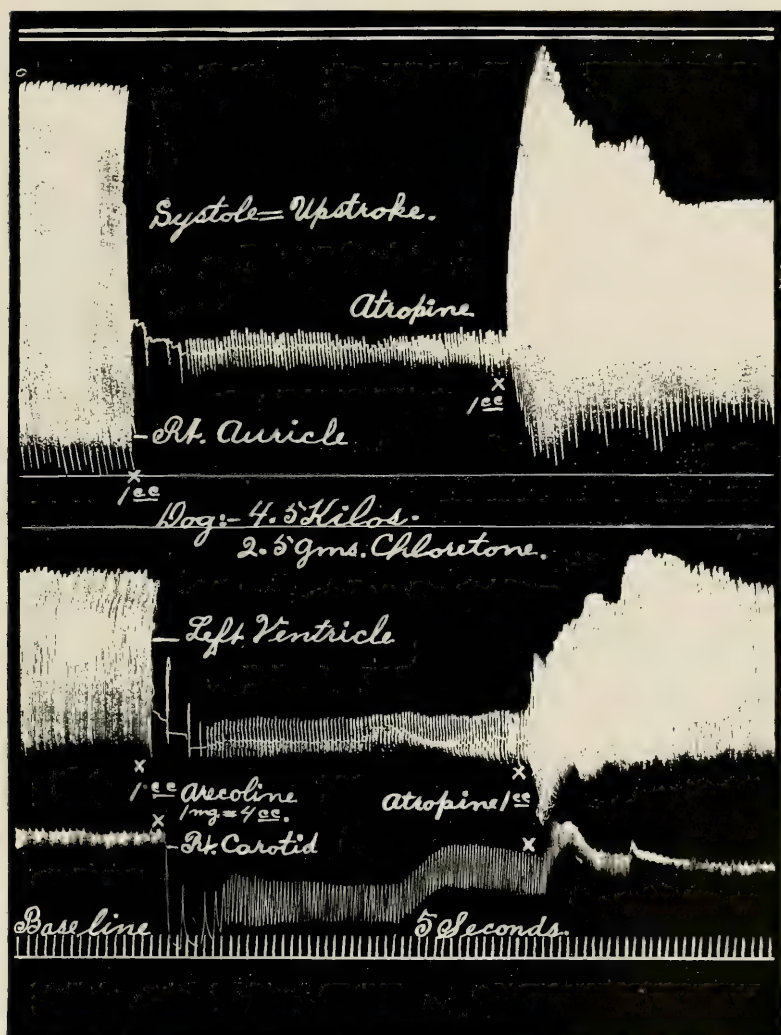 Systole = Upstroke.
Atropine
1 cc
Rt. Auricle
1 cc
Dog:- 4.5 Kilos.
2.5 gms. Chloretone.
Left Ventricle
1 cc Arecoline
1 mg = 4 cc.
Atropine 1 cc
Rt. Carotid
Base line
5 Seconds.